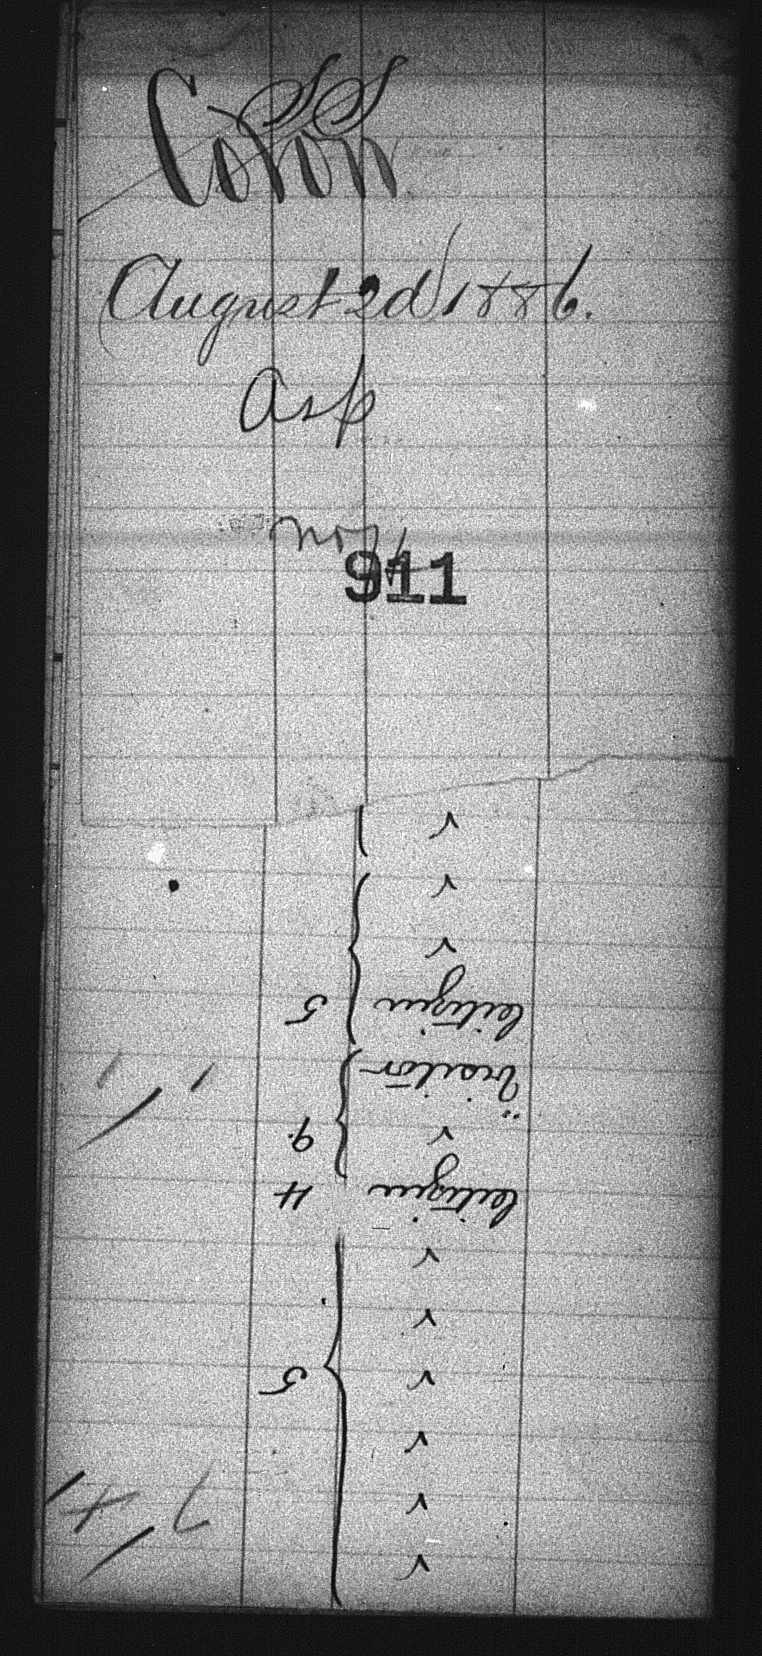 SS
Colon
August 2d 1886.
Asp
911
5
citizen
visitor
9
4
citizen
5